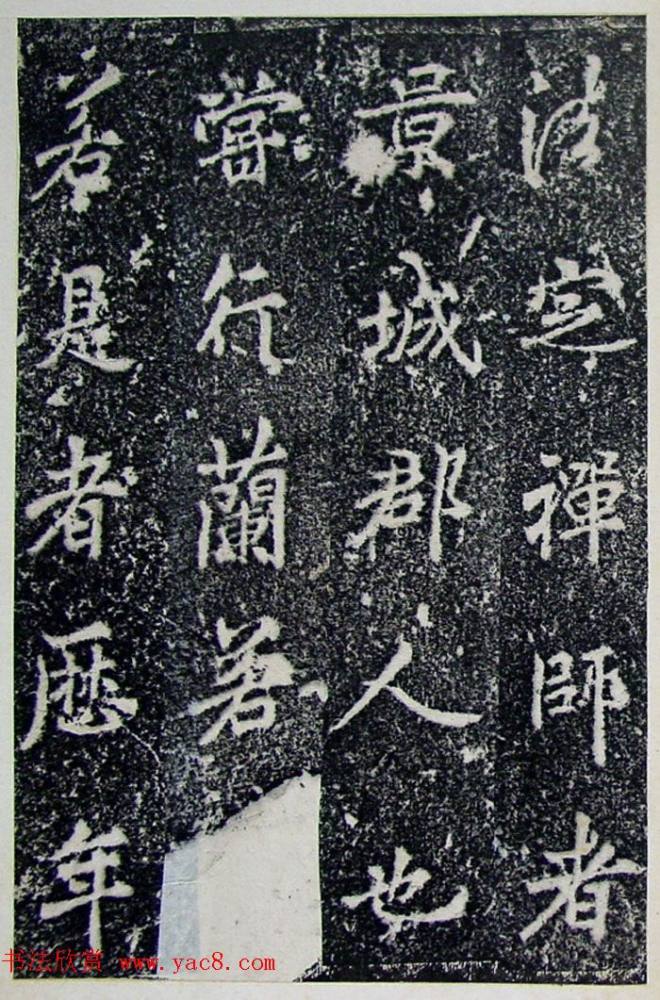 法定禪師者
景城郡人也
嘗行蘭若
若是者厯年
书法欣赏 www.yac8.com